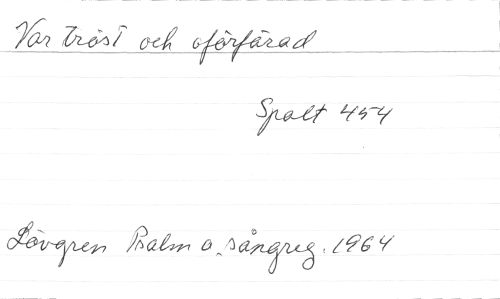 Var tröst och oförfärad
Spalt 454
Lövgren Psalm o. sångreg. 1964